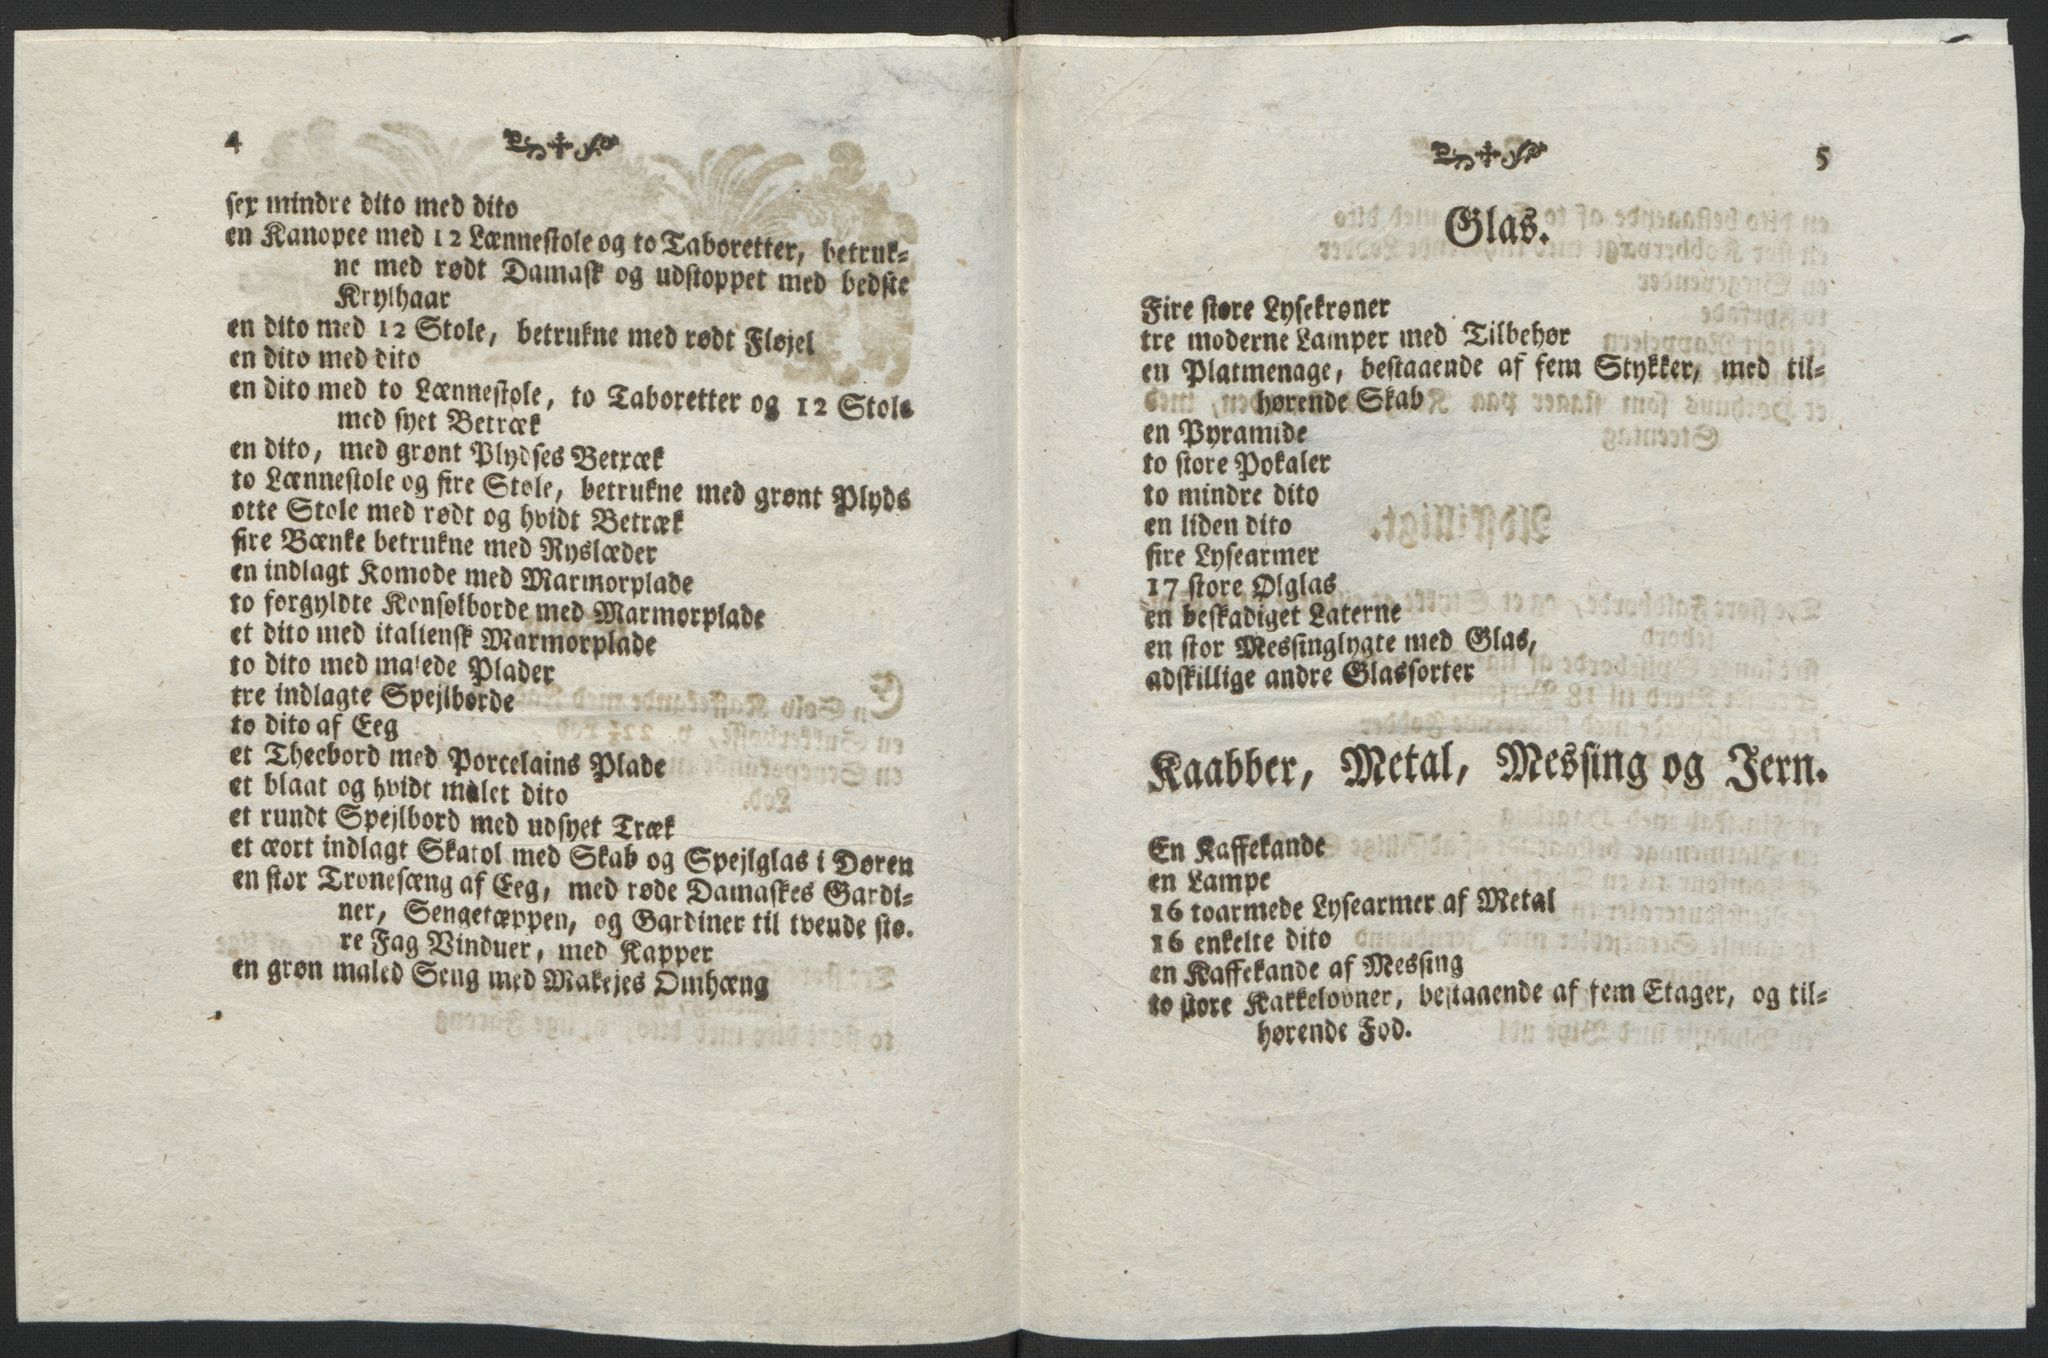 4
sex mindre dito med dito
en Kanopee med 12 Lænnestole og to Taboretter, betruk-
ne med rødt Damask og udstoppet med bedste
Krylhaar
en dito med 12 Stole, betrukne med rødt Fløjel
en dito med dito
en dito med to Lænnestole, to Taboretter og 12 Stole
med syet Betræk
en dito, med grønt Plydses Betræk
to Lænnestole og fire Stole, betrukne med grønt Plyds
otte Stole med rødt og hvidt Betræk
fire Bænke betrukne med Ryslæder
en indlagt Komode med Marmorplade
to forgyldte Konsolborde med Marmorplade
et dito med italiensk Marmorplade
to dito med malede Plader
tre indlagte Spejlborde
to dito af Eeg
et Theebord med Porcelains Plade
et blaat og hvidt malet dito
et rundt Spejlbord med udsyet Træk
et æort indlagt Skatol med Skab og Spejlglas i Døren
en stor Tronesæng af Eeg, med røde Damaskes Gardi-
ner, Sengetæppen, og Gardiner til tvende sto.
re Fag Vinduer, med Kapper
en grøn maled Seng med Makejes Omhæng
5
Glas.
Fire store Lysekrøner
tre moderne Lamper med Tilbehør
en Platmenage, bestaaende af fem Stykker, med til-
hørende Skab
en Pyramide
to store Pokaler
to mindre dito
en liden dito
fire Lysearmer
17 store Ølglas
en beskadiget Laterne
en stor Messinglygte med Glas,
adskillige andre Glassorter
Kaabber, Metal, Messing og Jern.
En Kaffekande
en Lampe
16 toarmede Lysearmer af Metal
16 enkelte dito
en Kaffekande af Messing
to store Kakkelovner, bestaaende af fem Etager, og til-
hørende Fod.